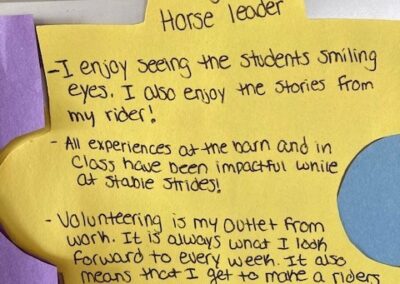 Horse leader
- I enjoy seeing the students smiling
eyes. I also enjoy the stories from
my rider!
- All experiences at the barn and in
class have been impactful while
at Stable Strides!
- Volunteering is my outlet from
work. It is always what I look
forward to every week. It also
means that I get to make a riders